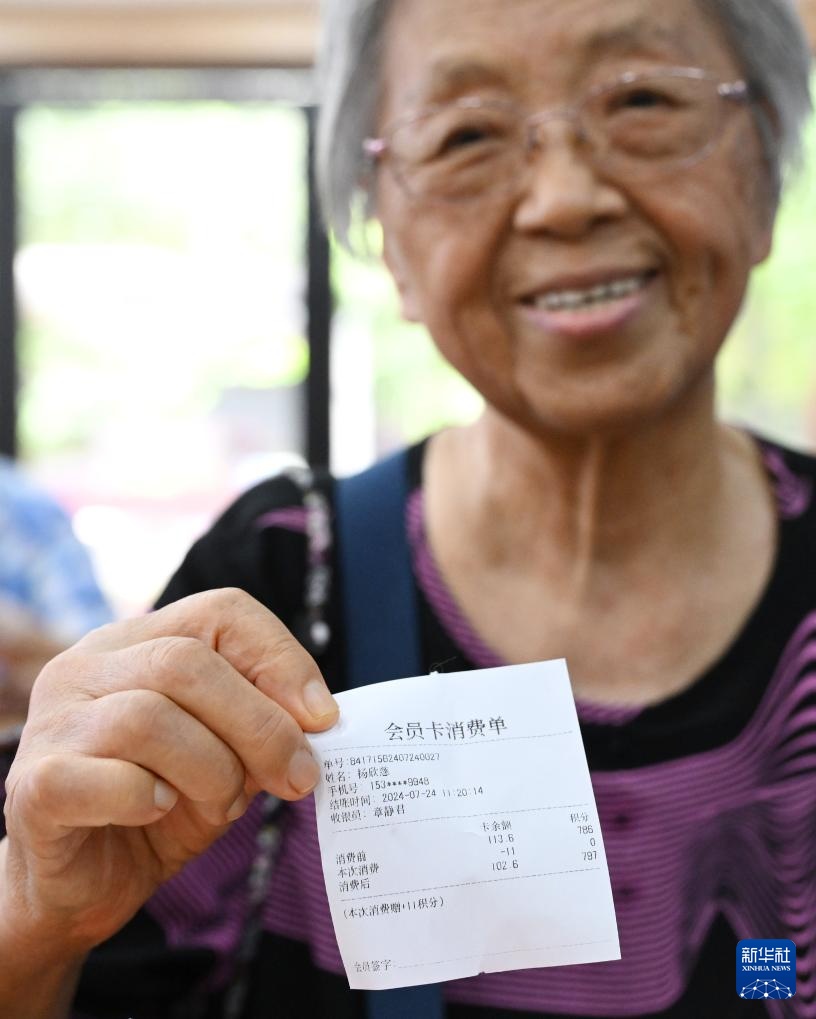 会员卡消费单
单号:84171582407240027
姓名: 杨欣慈
手机号 153****9948
结账时间: 2024-07-24 11:20:14
收银员: 章静君
卡余额 积分
消费前 113.6 786
本次消费 -11 0
消费后 102.6 797
(本次消费赠+11积分)
会员签字:
新华社
XINHUA NEWS